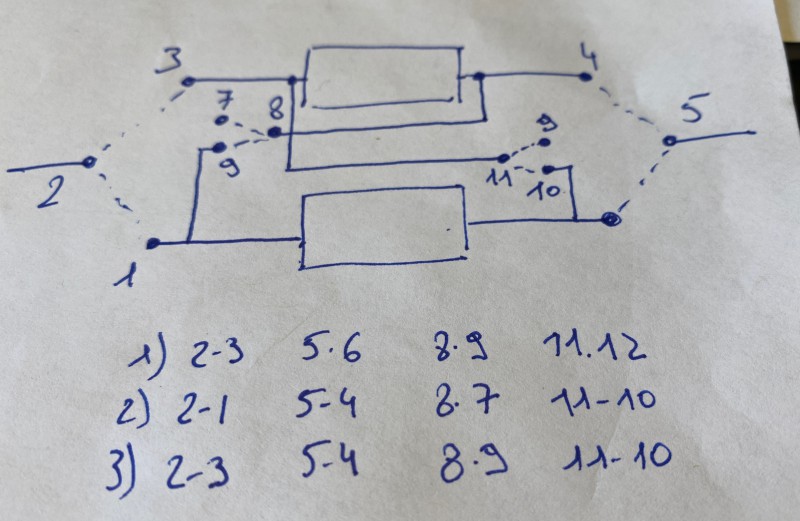 3 4
7 8 5
9 9
2 11 10
1
1) 2-3 5.6 8.9 11.12
2) 2-1 5-4 8.7 11-10
3) 2-3 5-4 8.9 11-10